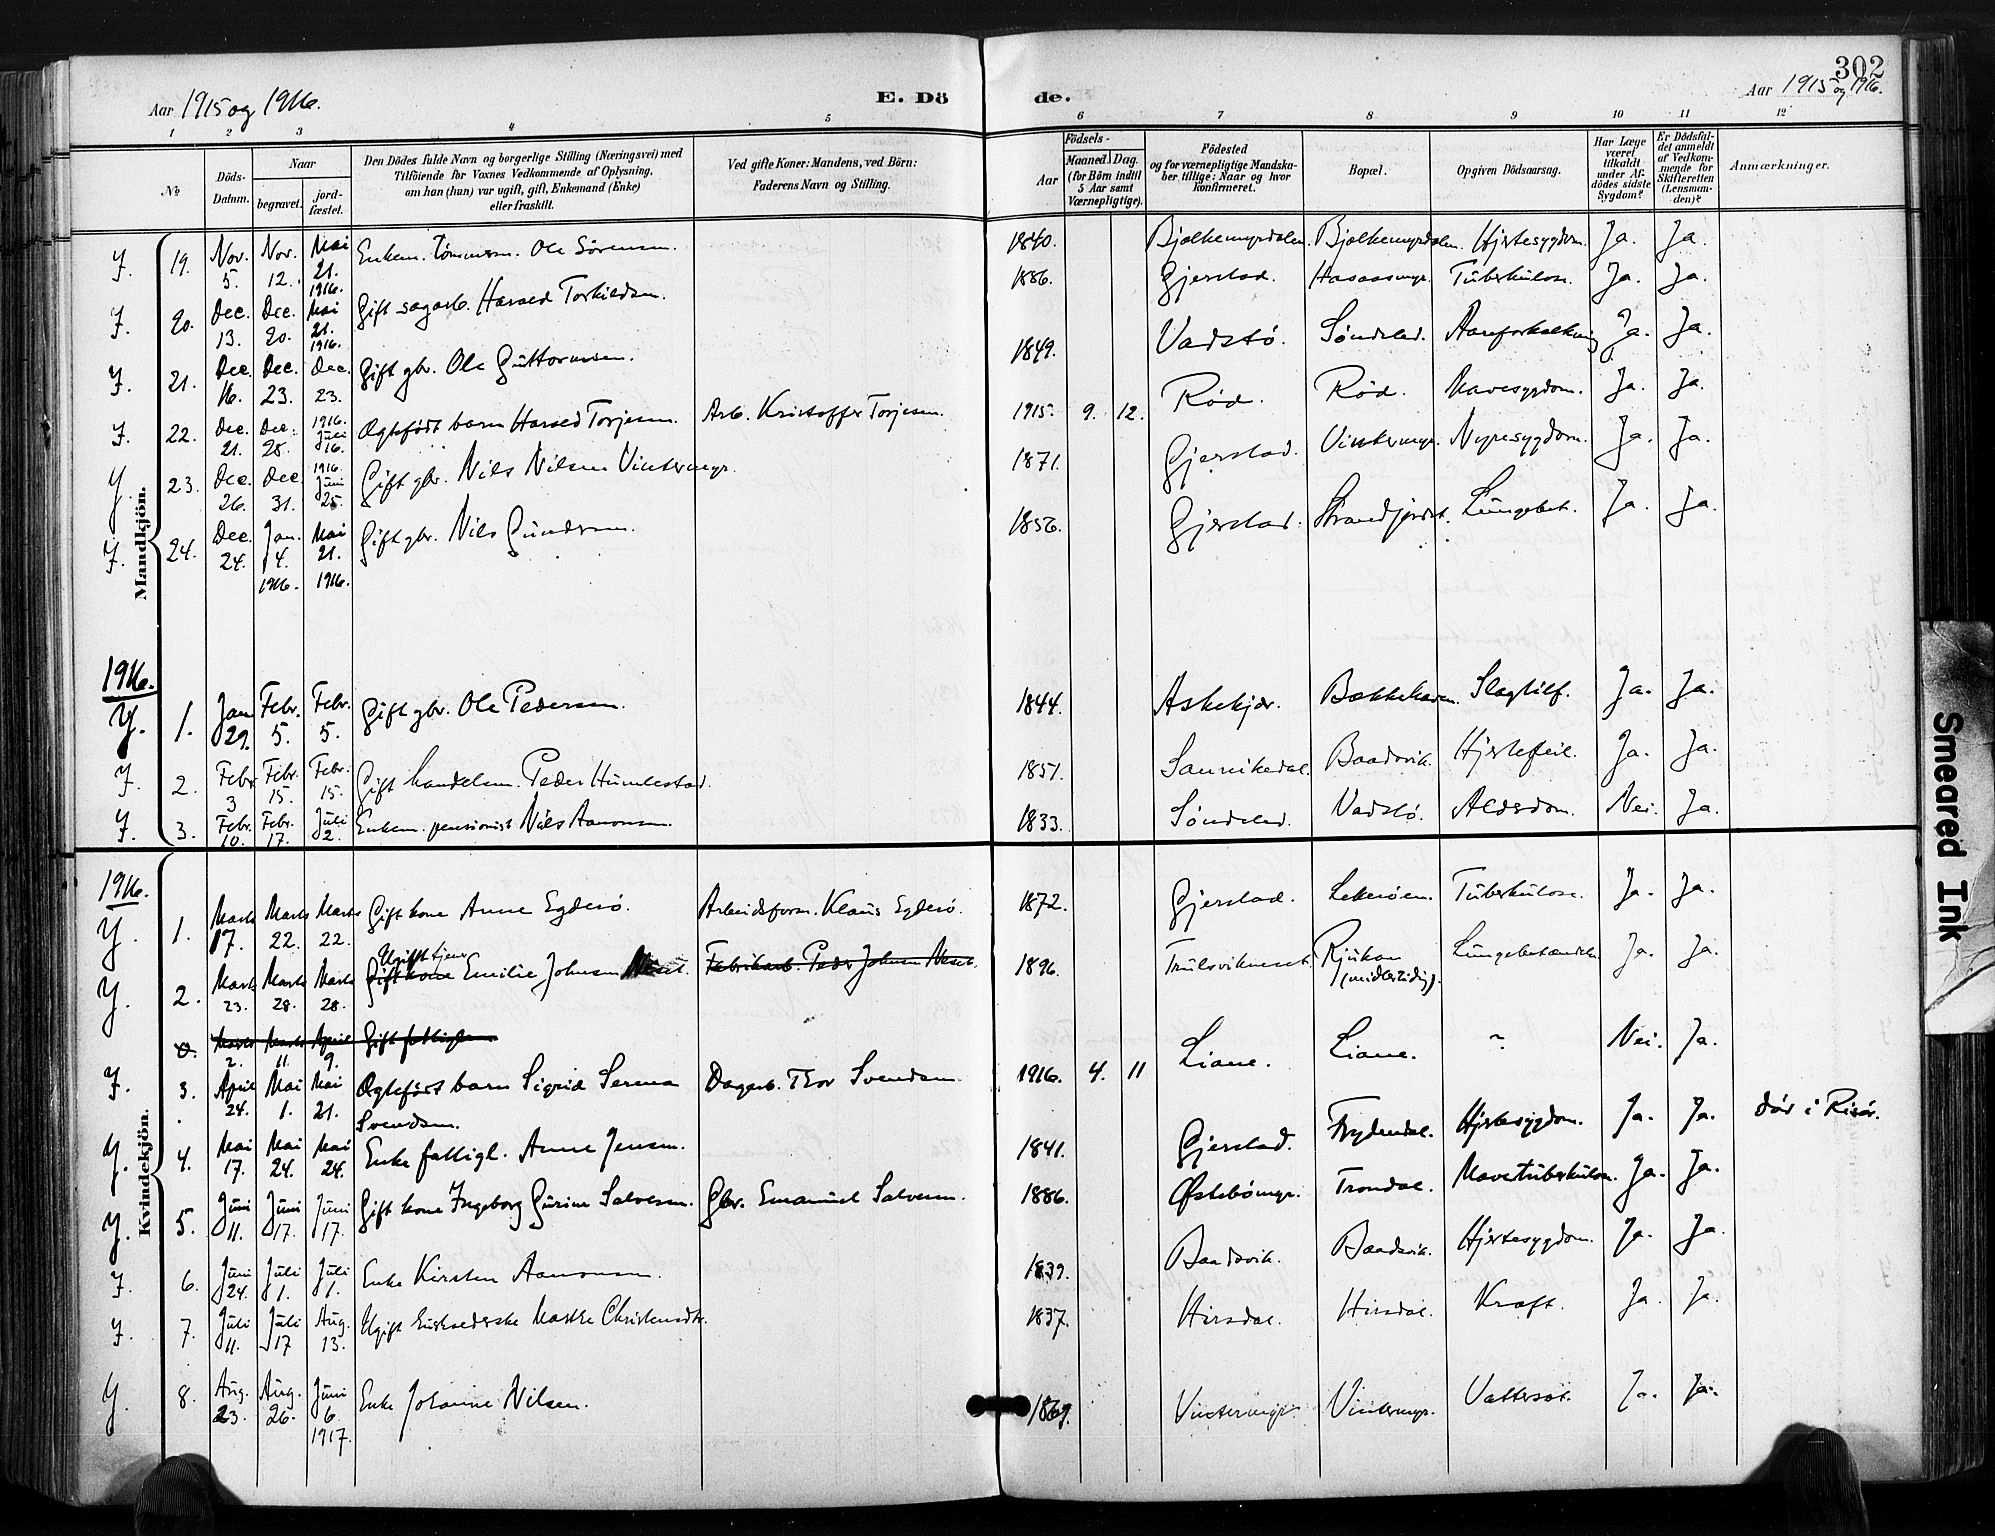 302
Aar 1915 og 1916.
E. Dö
de.
Aar 1915 og 1916.
1 2 3 4 5 6 7 8 9 10 11 12
No
Döds-Datum.
Naar
begravet.
jord-fæstet.
Den Dödes fulde Navn og borgerlige Stilling (Næringsvei) med Tilföiende for Voxnes Vedkommende af Oplysning, om han (hun) var ugift, gift, Enkemand (Enke) eller fraskilt.
Ved gifte Koner: Mandens, ved Börn: Faderens Navn og Stilling.
Födsels-
Aar
Maaned. Dag.
(for Börn indtil 5 Aar samt Værnepligtige).
Födested og for værnepligtige Mandska-ber tillige: Naar og hvor konfirmeret.
Bopæl.
Opgiven Dödsaarsag.
Har Læge været tilkaldt under Af-dödes sidste Sygdom?
Er Dödsfal-det anmeldt af Vedkom-mende for Skifteretten (Lensman-den)?
Anmærkninger.
Mandkjön.
19. Nov. 5. Nov. 12. Mai 21. 1916. Enkem. tömmerm. Ole Sörensen. 1840. Bjelkemyrdalen. Bjelkemyrdalen. Hjertesygdom. Ja. Ja.
20. Dec. 13. Dec. 20. Mai 21. 1916. Gift sagarb. Harald Torkildsen. 1886. Gjerstad. Hasaasmyr. Tüberkülose. Ja. Ja.
21. Dec. 16. Dec. 23. Dec. 23. Gift gbr. Ole Güttormsen. 1849. Vadstø. Søndeled. Aareforkalkning Ja. Ja.
22. Dec. 21. Dec. 28. 1916. Juli 16. Ægtefödt barn Harald Torjesen. Arb. Kristoffer Torjesen. 1915. 9. 12. Rød. Rød. Mavesygdom. Ja. Ja.
23. Dec. 26. Dec. 31. 1916. Juni 25. Gift gbr. Nils Nilsen Vintermyr. 1871. Gjerstad. Vintermyr. Nyresygdom. Ja. Ja.
24. Dec. 24. Jan. 4. 1916. Mai 21. 1916. Gift gbr. Nils Gündersen. 1856. Gjerstad. Strandjordet. Lüngebet. Ja. Ja.
1916.
1. Jan 29. Febr. 5. Febr. 5. Gift gbr. Ole Pedersen. 1844. Askekjær. Bækkehaven. Slagtilf. Ja. Ja.
2. Febr 3 Febr. 15. Febr. 15. Gift handelsm. Peder Hümlestad. 1851. Sannikedal. Baadsvik. Hjertefeil. Ja. Ja.
3. Febr. 10. Febr. 17. Juli 2. Enkem. pensionist Nils Aanonsen. 1833. Søndeled. Vadstø. Alderdom. Nei. Ja.
Kvindekjön.
1916.
1. Marts 17. Marts 22. Marts 22. Gift kone Anne Egdesø. Arbeidsform. Klaüs Egdesø. 1872. Gjerstad. Tüberkülose. Ja. Ja.
2. Marts 23. Marts 28. Marts 28. Ugift tjener Gift kone Emilie Johnsen Neset. Fabrikarb. Peder Johnsen Neset. 1896. Trülsvikneset. Rjükan (midlertidig). Lüngebetændelse Ja. Ja.
Marts 2. Marts 11. April 9. Gift
3. April 24. Mai 1. Mai 21. Ægtefödt barn Sigrid Serena Svendsen. Dagarb. Thor Svendsen. 1916. 4. 11 Liane. Liane. ~ Nei. Ja.
4. Mai 17. Mai 24. Mai 24. Enke fattigl. Anne Jensen. 1841. Gjerstad. Frydendal. Hjertesygdom. Ja. Ja. dør i Risør.
5. Juni 11. Juni 17. Juni 17. Gift kone Ingeborg Gürine Salvesen. Gbr. Emanüel Salvesen. 1886. Østebömyr. Trondal. Mavetüberkülose. Ja. Ja.
6. Juni 24. Juli 1. Juli 1. Enke Kirsten Aanonsen. 1839. Baadsvik. Baadsvik. Hjertesygdom. Ja. Ja.
7. Juli 11. Juli 17 Aug. 13. Ugift Marthe Christensdtr. 1837. Hirsdal. Hirsdal. Kræft. Ja. Ja.
8. Aug. 23. Aug. 26. Juni 6. 1917. Enke Johanne Nilsen. 1869. Vintermyr. Vintermyr. Vattersot. Ja. Ja.
Smeared Ink